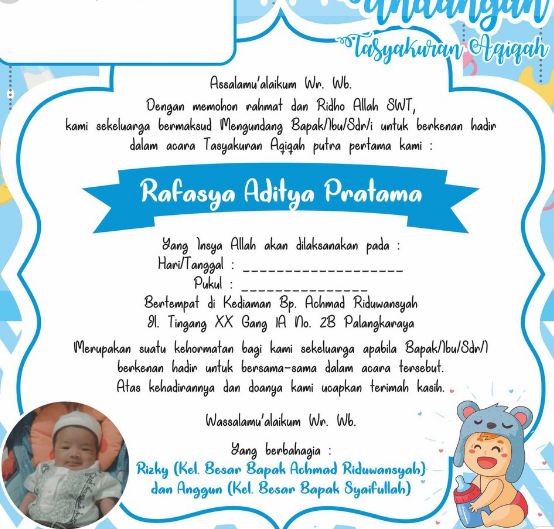 Undangan
Tasyakuran Aqiqah
Assalamu'alaikum Wr. Wb.
Dengan memohon rahmat dan Ridho Allah SWT,
kami sekeluarga bermaksud Mengundang Bapak/Ibu/Sdr/i untuk berkenan hadir
dalam acara Tasyakuran Aqiqah putra pertama kami :
Rafasya Aditya Pratama
Yang Insya Allah akan dilaksanakan pada :
Hari/Tanggal : ___________________
Pukul : _______________
Bertempat di Kediaman Bp. Achmad Riduwansyah
Jl. Tingang XX Gang IA No. 2B Palangkaraya
Merupakan suatu kehormatan bagi kami sekeluarga apabila Bapak/Ibu/Sdr/I
berkenan hadir untuk bersama-sama dalam acara tersebut.
Atas kehadirannya dan doanya kami ucapkan terimah kasih.
Wassalamu'alaikum Wr. Wb.
Yang berbahagia :
Rizky (Kel. Besar Bapak Achmad Riduwansyah)
dan Anggun (Kel. Besar Bapak Syaifullah)